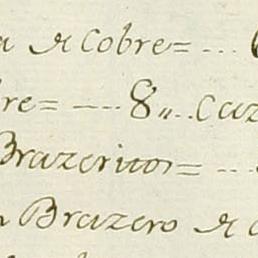 a de Cobre= ...
bre= ---- 8,,... Caz
Brazeritos= ...
n Brazero de a